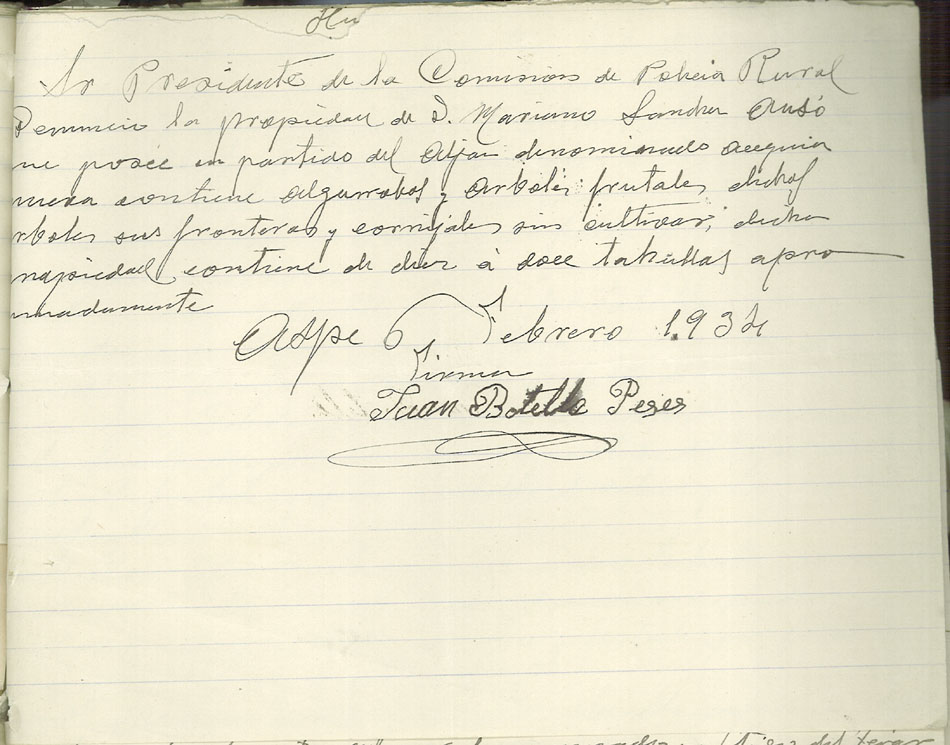 Sr Presidente de la Comision de Policia Rural
Denuncio la propiedad de D. Mariano Sanchez Ausó
ue posee en partido del Aljau denominado acequia
nueva contiene algarrobos y arboles frutales, dichos
rboles sus fronteras y cornijales sin cultivar, dicha
ropiedad contiene de diez á doce tahullas apro
imadamente
Aspe 6 Febrero 1.934
Firma
Juan Botella Peres
del